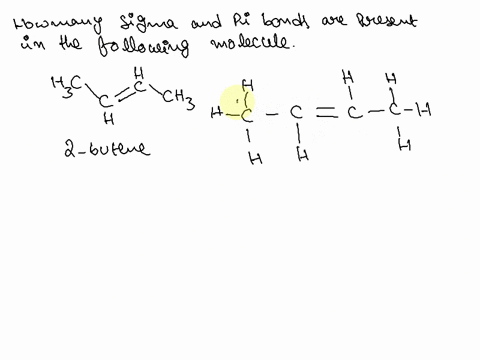 How many sigma and Pi bonds are present
in the following molecule.
H H H H
H₃C C = C CH₃ H - C - C = C - C - H
H H H H
2-butene